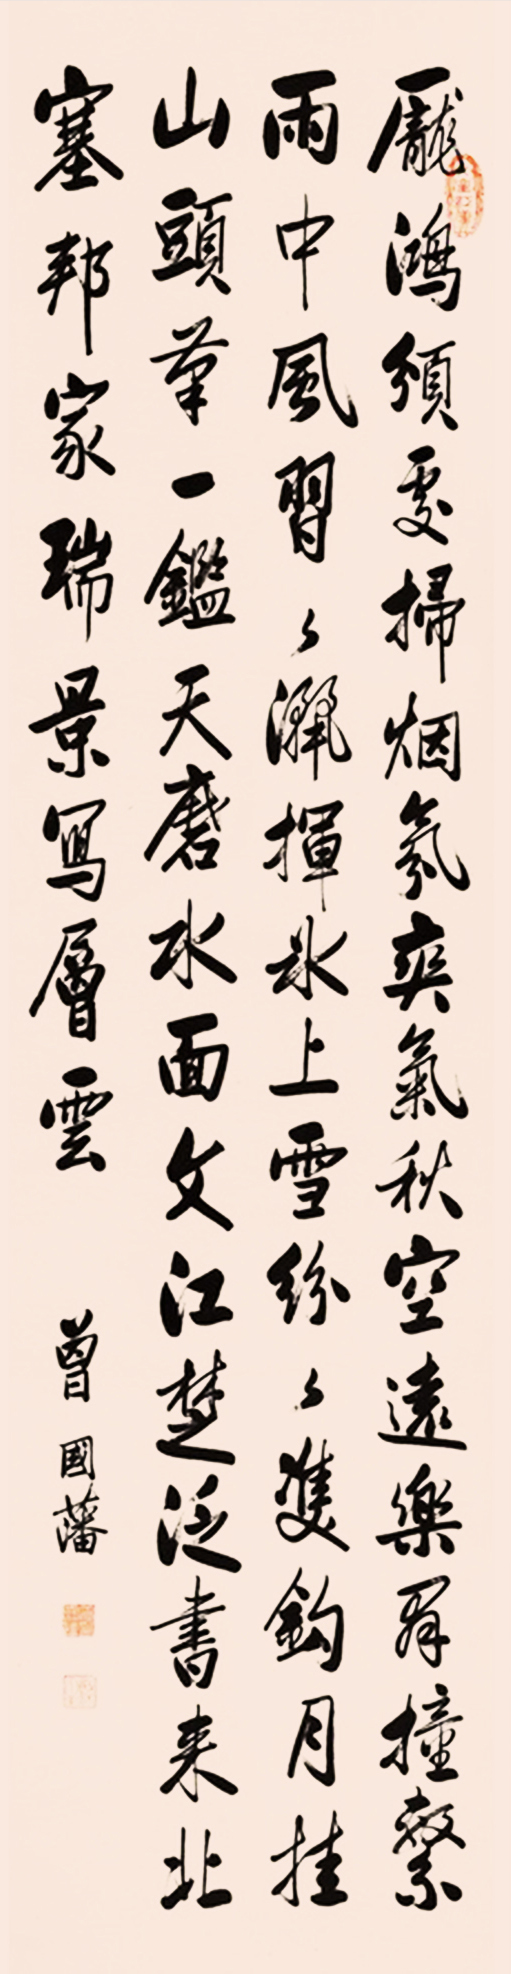 龎鴻須處掃烟氛爽氣秋空遠樂聞撞擊
雨中風習々灑揮氷上雪紛々雙鈎月挂
山頭筆一鑑天磨水面文江楚泛書来北
塞邦家瑞景寫層雲
曾國藩